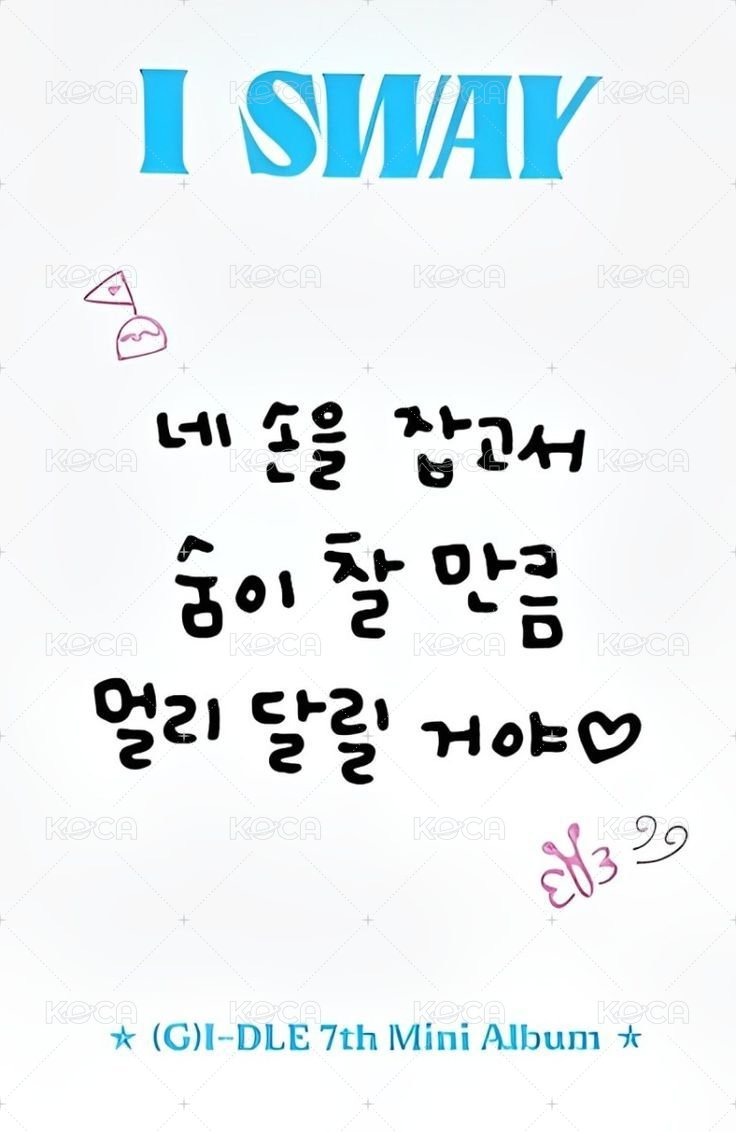 I SWAY
네 손을 잡고서
숨이 찰 만큼
멀리 달릴 거야♡
☆ (G)I-DLE 7th Mini Album ☆
KOCA